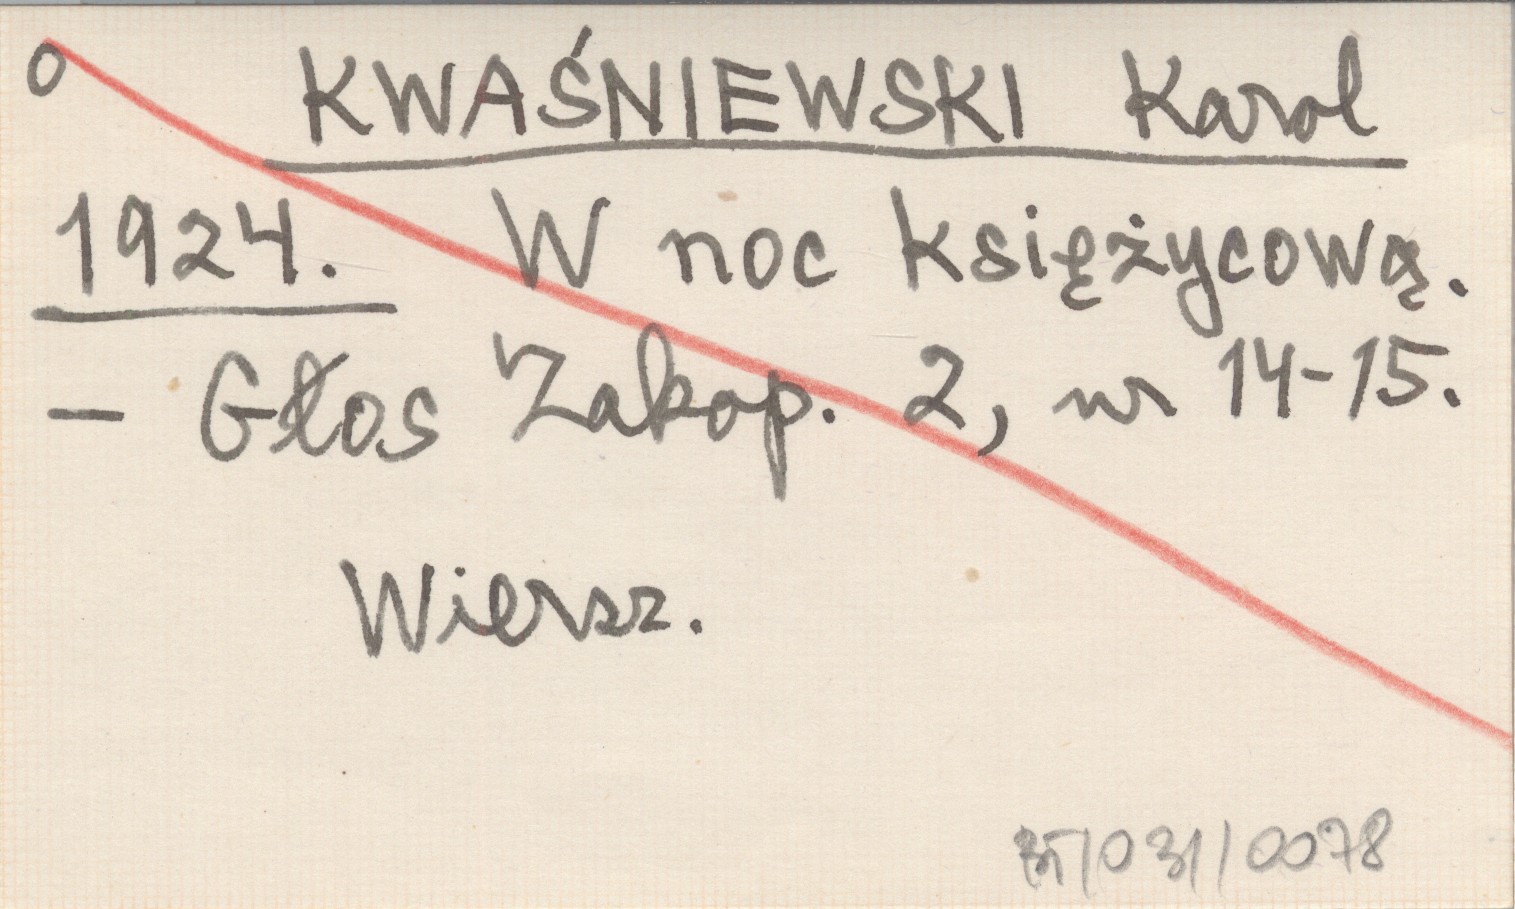 o KWAŚNIEWSKI Karol
1924. W noc księżycową.
– Głos Zakop. 2, nr 14-15.
Wiersz.
/03/10078